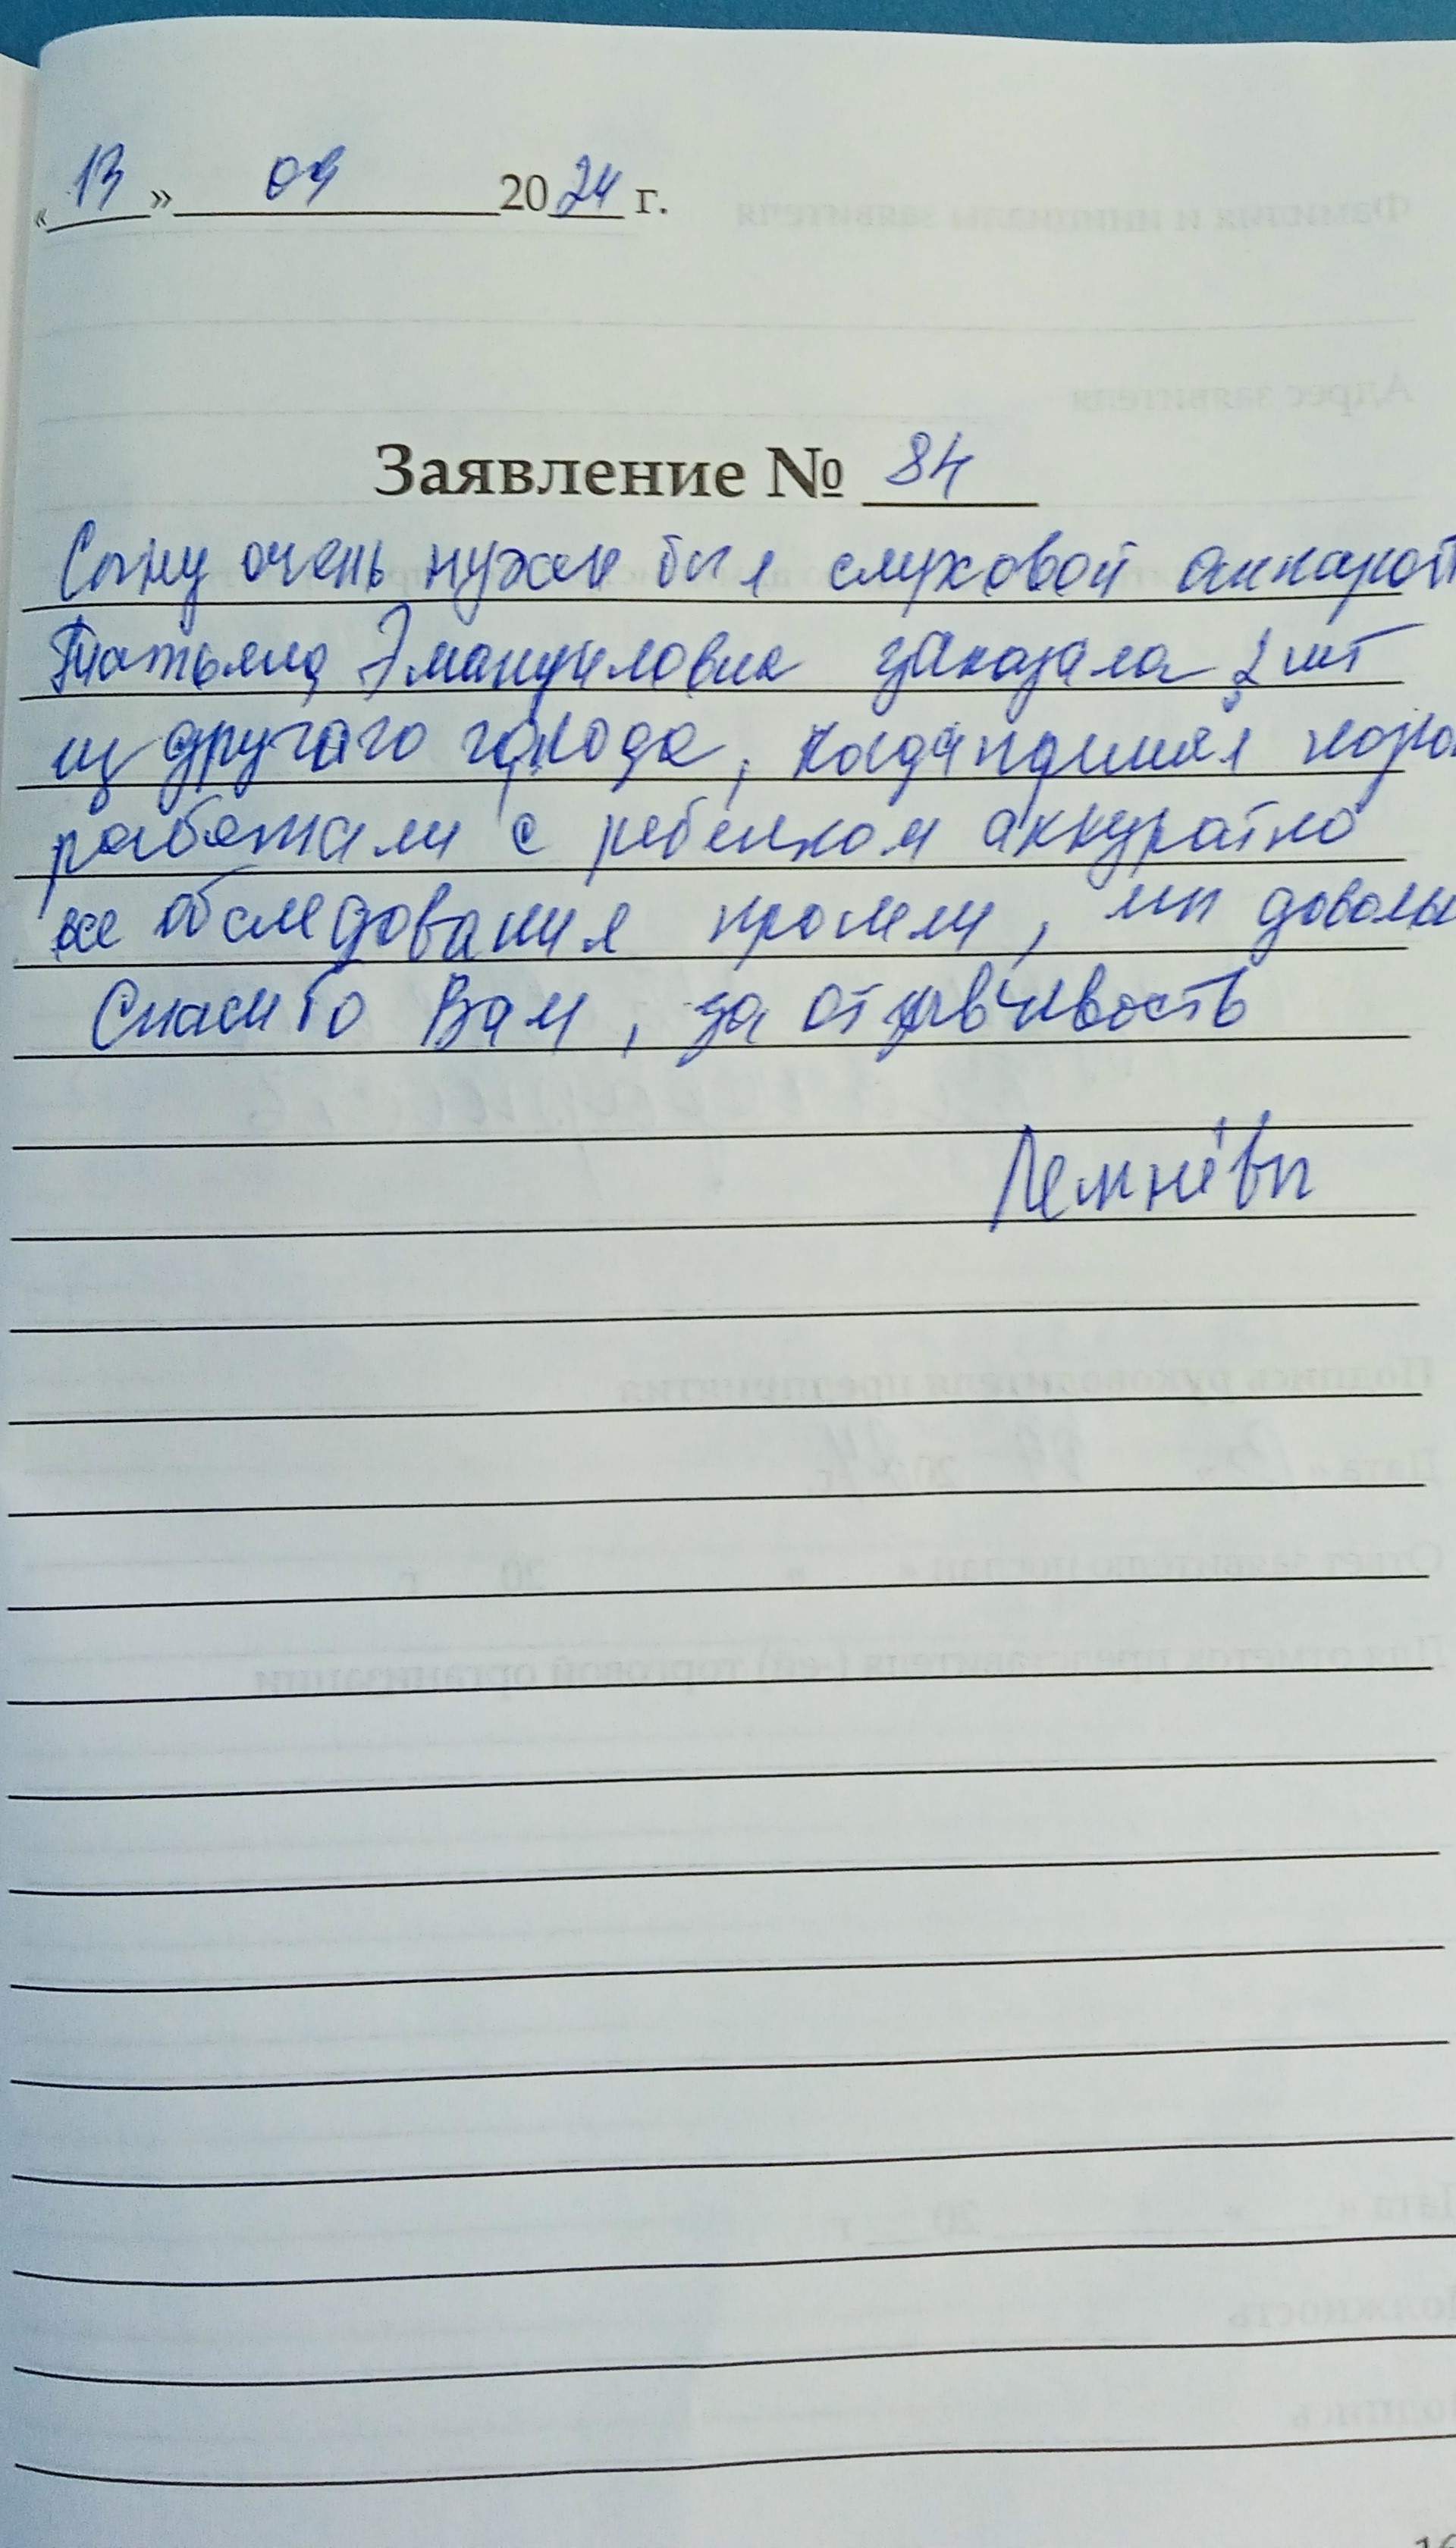 « 13 » 09 2024 г.
Заявление № 84
Сыну очень нужен был слуховой аппарат
Татьяна Эмануиловна заказала 2 шт
из другого города, когда пришли
работали с ребенком аккуратно
все обследования прошли, мы доволь
Спасибо Вам, за отзывчивость
Лемнёвы